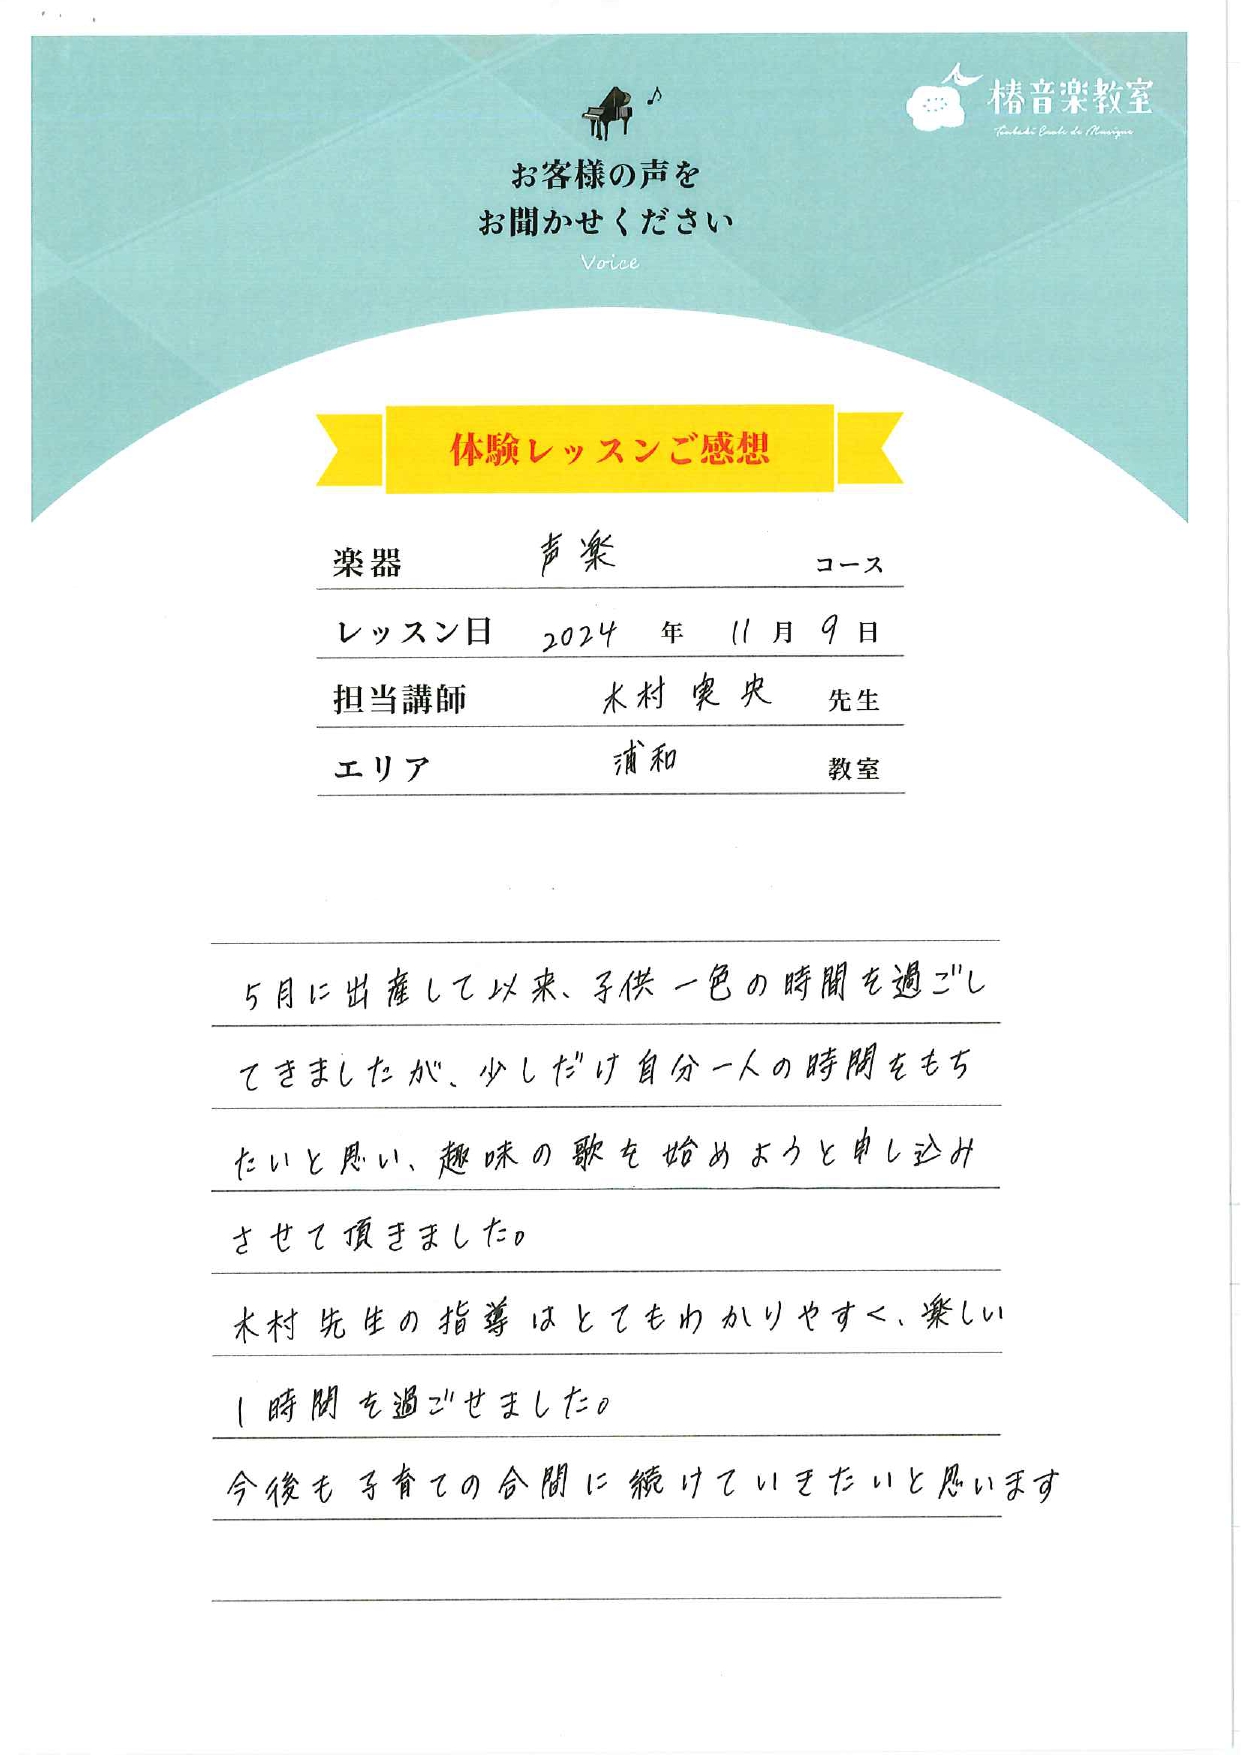 椿音楽教室
Tsubaki Ecole de Musique
お客様の声を
お聞かせください
Voice
体験レッスンご感想
楽器 声楽 コース
レッスン日 2024 年 11 月 9 日
担当講師 木村 実央 先生
エリア 浦和 教室
5月に出産して以来、子供一色の時間を過ごし
てきましたが、少しだけ自分一人の時間をもち
たいと思い、趣味の歌を始めようと申し込み
させて頂きました。
木村先生の指導はとてもわかりやすく、楽しい
1時間を過ごせました。
今後も子育ての合間に続けていきたいと思います